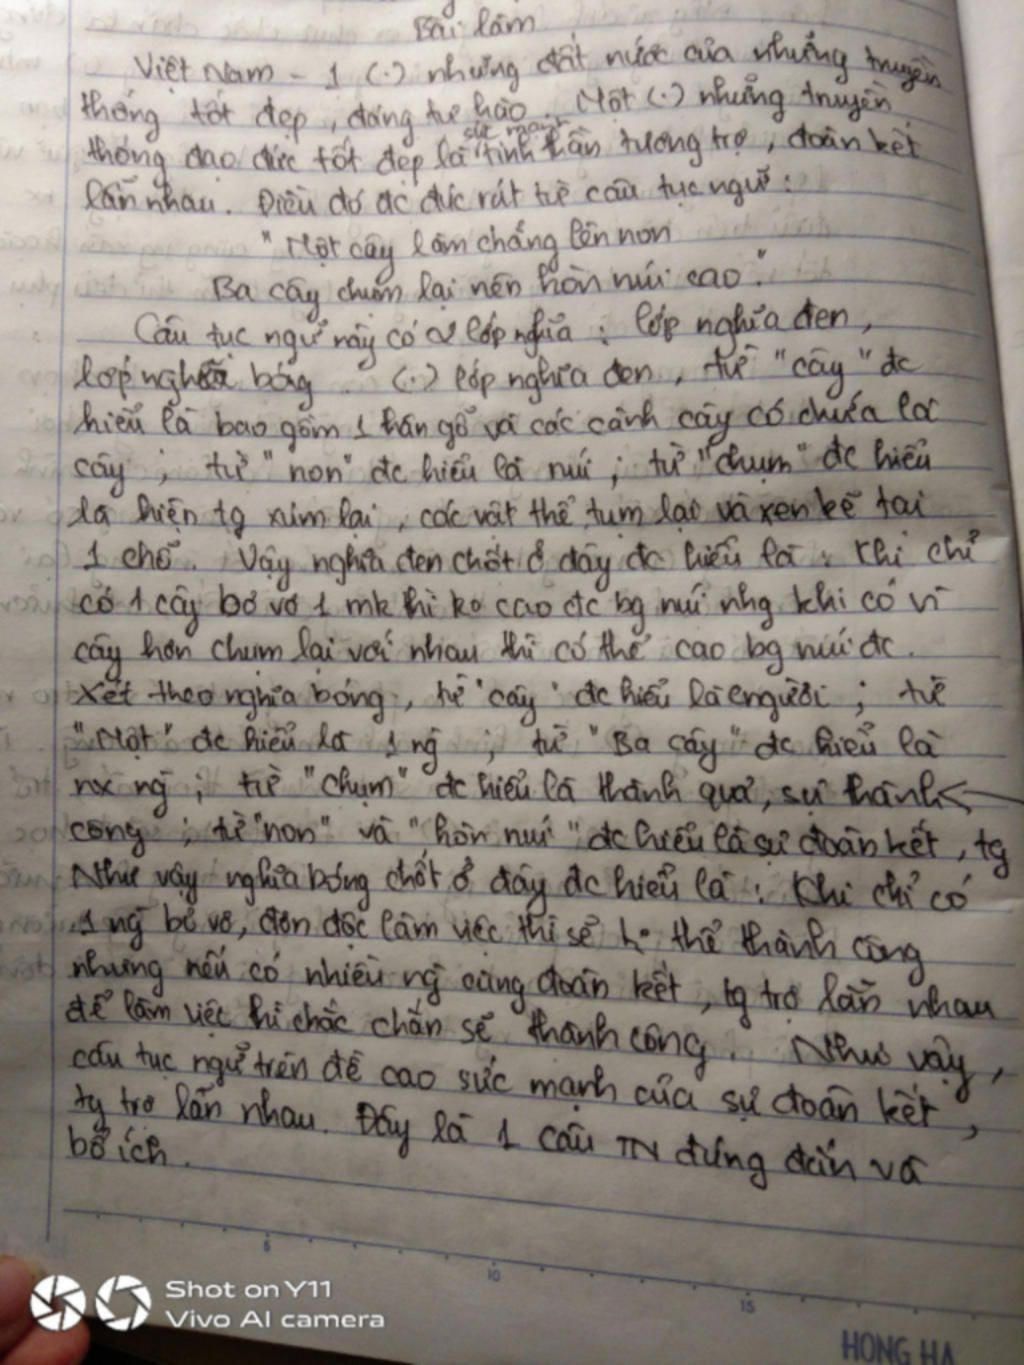 Bài làm
Việt Nam - 1 (.) những đất nước của những truyền
thống tốt đẹp, đáng tự hào. Một (.) những truyền
sức mạnh
thống đạo đức tốt đẹp là tinh thần tương trợ, đoàn kết
lẫn nhau. Điều đó đc đúc rút từ câu tục ngữ:
"Một cây làm chẳng lên non
Ba cây chụm lại nên hòn núi cao".
Câu tục ngữ này có 2 lớp nghĩa: lớp nghĩa đen,
lớp nghĩa bóng. (.) lớp nghĩa đen, từ "cây" đc
hiểu là bao gồm 1 thân gỗ và các cành cây có chứa lá
cây; từ "non" đc hiểu là núi; từ "chụm" đc hiểu
là hiện tg xúm lại, các vật thể tụm lại và xen kẽ tại
1 chỗ. Vậy nghĩa đen chốt ở đây đc hiểu là: Khi chỉ
có 1 cây bơ vơ 1 mk thì ko cao đc bg núi nhg khi có vì
cây hơn chụm lại với nhau thì có thể cao bg núi đc.
Xét theo nghĩa bóng, từ "cây" đc hiểu là người; từ
"Một" đc hiểu là 1 ng; từ "Ba cây" đc hiểu là
nx ng; từ "chụm" đc hiểu là thành quả, sự thành
công; từ "non" và "hòn núi" đc hiểu là sự đoàn kết, tg
Như vậy nghĩa bóng chốt ở đây đc hiểu là: Khi chỉ có
1 ng bơ vơ, đơn độc làm việc thì sẽ ko thể thành công
nhưng nếu có nhiều ng cùng đoàn kết, tg trợ lẫn nhau
để làm việc thì chắc chắn sẽ thành công. Như vậy,
câu tục ngữ trên đề cao sức mạnh của sự đoàn kết,
tg trợ lẫn nhau. Đây là 1 câu TN đúng đắn và
bổ ích.
5
10
15
HONG HA
Shot on Y11
Vivo AI camera